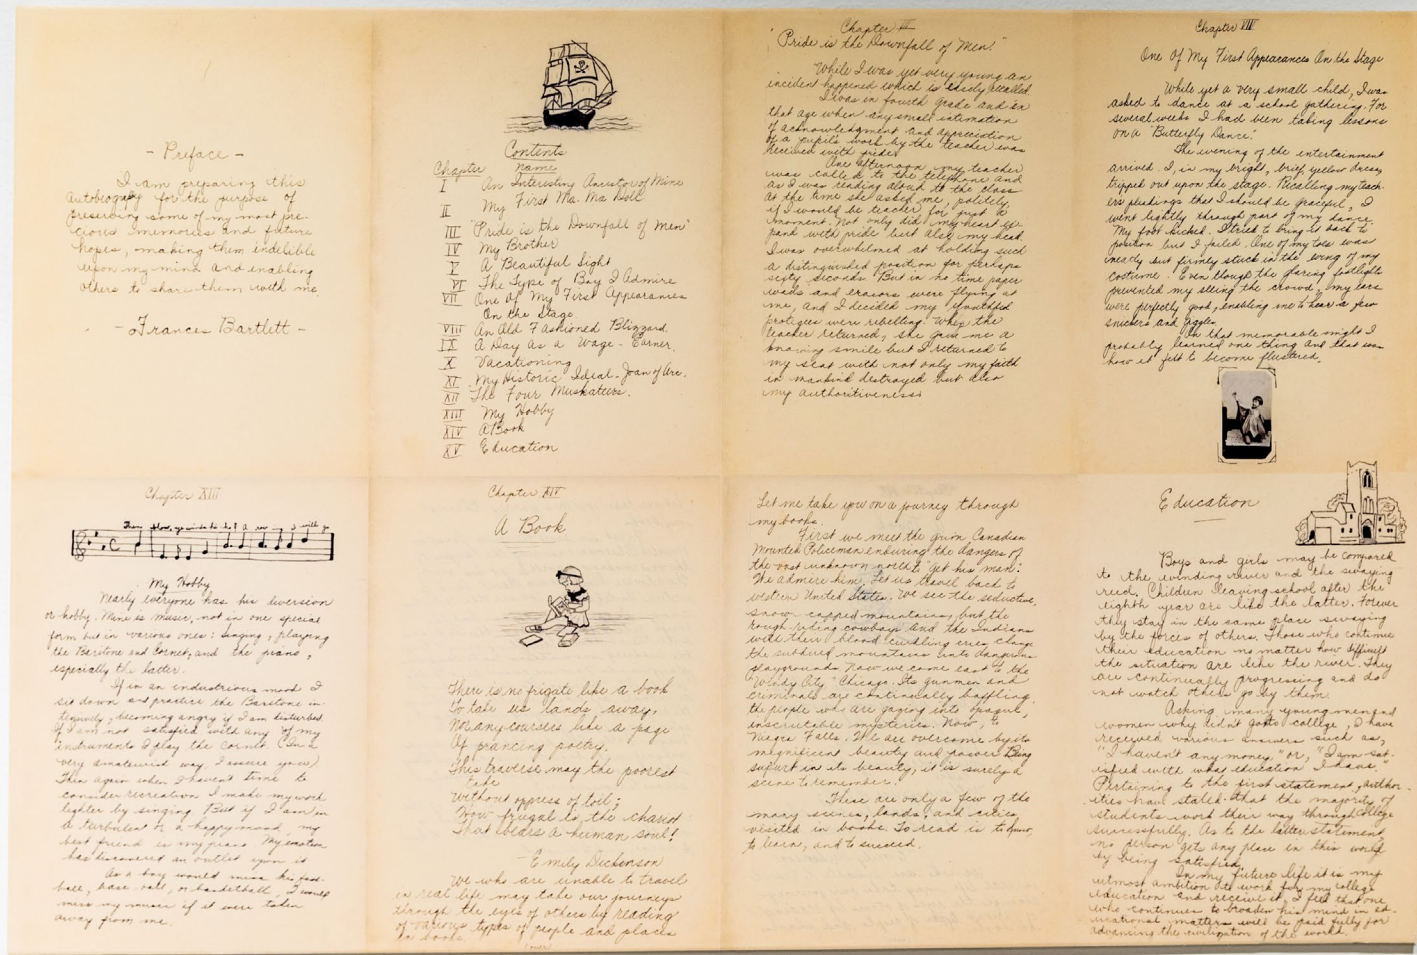 - Preface -
I am preparing this
autobiography for the purpose of
preserving some of my most pre-
cious memories and future
hopes, making them indelible
upon my mind and enabling
others to share them with me.
- Frances Bartlett -
Contents
Chapter Name
I An Interesting Ancestor of Mine
II My First Ma-Ma Doll
III "Pride is the Downfall of Men"
IV My Brother
V A Beautiful Sight
VI The Type of Boy I Admire
VII One Of My First Appearances
On the Stage.
VIII An Old Fashioned Blizzard
IX A Day As a Wage-Earner.
X Vacationing
XI My Historic Ideal-Joan of Arc.
XII The Four Muskateers.
XIII My Hobby
XIV A Book
XV Education
Chapter III
"Pride is the Downfall of Men!"
While I was yet very young an
incident happened which is easily recalled.
I was in fourth grade and in
that age when any small intimation
of acknowledgment and appreciation
of a pupil's work by the teacher was
received with pride.
One afternoon my teacher
was called to the telephone and
as I was reading aloud to the class
at the time she asked me, politely,
if I would be teacher for just a
moment. Not only did my heart ex-
pand with pride but also my head.
I was overwhelmed at holding such
a distinguished position for perhaps
sixty seconds. But in no time paper
wads and erasers were flying at
me, and I decided my youthful
protegees were rebelling. When the
teacher returned, she gave me a
knowing smile but I returned to
my seat with not only my faith
in mankind destroyed but also
my authoritiveness.
Chapter VII
One Of My First Appearances On the Stage
While yet a very small child, I was
asked to dance at a school gathering. For
several weeks I had been taking lessons
on a "Butterfly Dance."
The evening of the entertainment
arrived. I, in my bright, brief, yellow dress,
tripped out upon the stage. Recalling my teach-
ers pleadings that I should be graceful, I
went lightly through part of my dance.
My foot kicked. I tried to bring it back to
position but I failed. One of my toes was
nearly but firmly stuck in the wing of my
costume. Even though the glaring footlights
prevented my seeing the crowd, my ears
were perfectly good, enabling me to hear a few
snickers and giggles.
On that memorable night I
probably learned one thing and that was
how it felt to become flustered.
Chapter XIII
My Hobby
Nearly everyone has his diversion
or hobby. Mine is music, not in one special
form but in various ones: singing, playing
the Baritone and Cornet, and the piano,
especially the latter.
If in an industrious mood I
sit down and practice the Baritone in-
tensively, becoming angry if I am disturbed.
If I am not satisfied with any of my
instruments I play the cornet. (In a
very amateurish way, I assure you)
Then again when I haven't time to
consider recreation I make my work
lighter by singing. But if I am in
a turbulent or a happy mood, my
best friend is my piano. My emotion
has discovered an outlet upon it
As a boy would miss his foot-
ball, base-ball, or basketball, I would
miss my music if it were taken
away from me.
Chapter XIV
A Book
There is no frigate like a book
To take us lands away,
Nor any courses like a page
Of prancing poetry.
This traverse may the poorest
take
Without oppress of toil;
How frugal is the chariot
That bears a human soul!
- Emily Dickinson
We who are unable to travel
in real life may take our journeys
through the eyes of others by reading
of various types of people and places
in books.
(over)
Let me take you on a journey through
my books.
First we meet the grim Canadian
Mounted Policeman enduring the dangers of
the vast unknown north to "get his man".
We admire him. Let us travel back to
western United States. We see the seductive,
snow capped mountains, but the
rough riding cowboys and the Indians
with their blood curdling cries change
the subdued mountains into dangerous
playgrounds. Now we come east to the
"Windy City" Chicago. Its gunmen and
criminals are continually baffling
the people who are gazing into opaque,
inscrutable mysteries. Now, to
Niagra Falls. We are overcome by its
magnificent beauty and power. Being
superb in its beauty, it is surely a
scene to remember.
These are only a few of the
many scenes, lands, and cities
visited in books. To read is to know,
to learn, and to succeed.
Education
Boys and girls may be compared
to the winding river and the swaying
reed. Children leaving school after the
eighth year are like the latter. Forever
they stay in the same place swaying
by the forces of others. Those who continue
their education no matter how difficult
the situation are like the river. They
are continually progressing and do
not watch others go by them.
Asking many young men and
women why didn't go to college, I have
received various answers such as,
"I haven't any money" or, "I am sat-
isfied with what education I have."
Pertaining to the first statement, author-
ities have stated that the majority of
students work their way through college
successfully. As to the latter statement,
no person get any place in this world
by being satisfied.
In my future life it is my
utmost ambition to work for my college
education and receive it. I feel that one
who continues to broaden his mind in ed-
ucational matters will be paid fully for
advancing the civilization of the world.